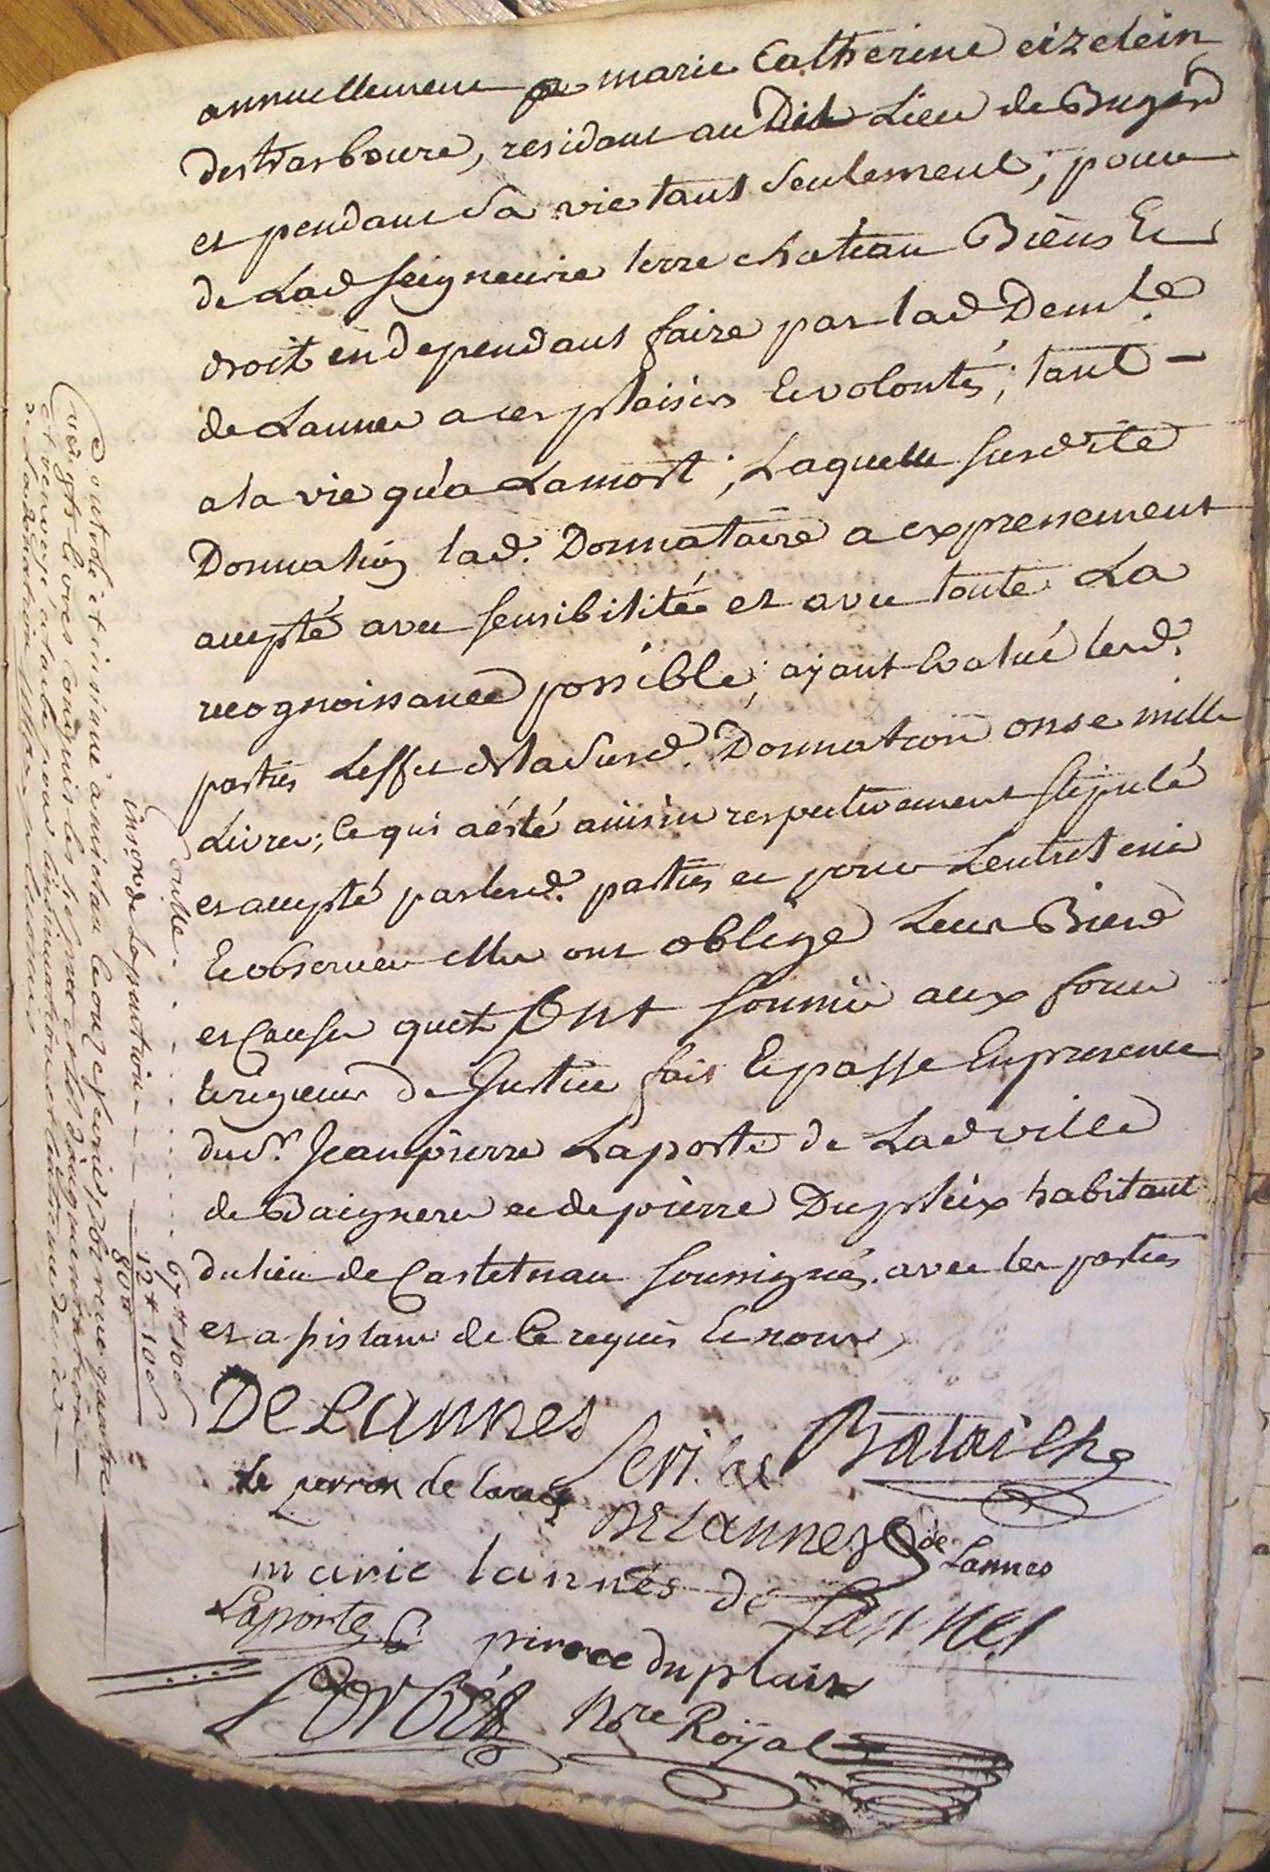 annuellement a marie Catherine eizelein
destrasbourc, residant au Dit Lieu de Bugard
et pendant sa vie tant seulement, pour
de Lad seigneurie terre chateau Biens Et
droit en dependant faire par lad Demlle
de Lannes a ces plaisirs Et volontés, tant
a la vie qu'a La mort, Laquelle susdite
Donnation lad. Donnataire a expressement
accepté avec sensibilitée et avec toute La
recognoissance possible, ayant Evalué lesd.
parties Leffet de la susd. Donnation onse mille
Livres; Ce qui a ésté ainsin respectivement stipulé
et accepté par lesd. parties et pour Lentretenir
Et observer elles ont obligé Leurs Biens
et Causes quet Ont soumis aux forces
Et rigueurs de Justice fait Et passé En presence
du Sr. Jean pierre Laporte de Lad ville
de Baigneres et de pierre Dupleix habitant
du lieu de Castelnau soussignés avec les parties
et a Listant de Ce requis Et nous,
De Lannes Batailhe
De Lannes de Lannes
marie lannes de Lannes
Laporte pierre duplaix
Corbés Nore Royal
Controllé et insinué
de la donnation
insinon de La pention 12# 10s
67# 10s
80#